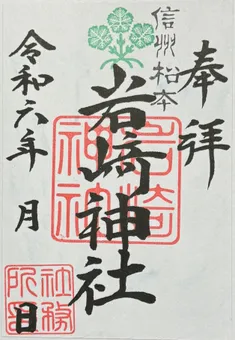 奉拝
信州松本
岩﨑神社
岩崎神社
令和六年 月 日
社務所印